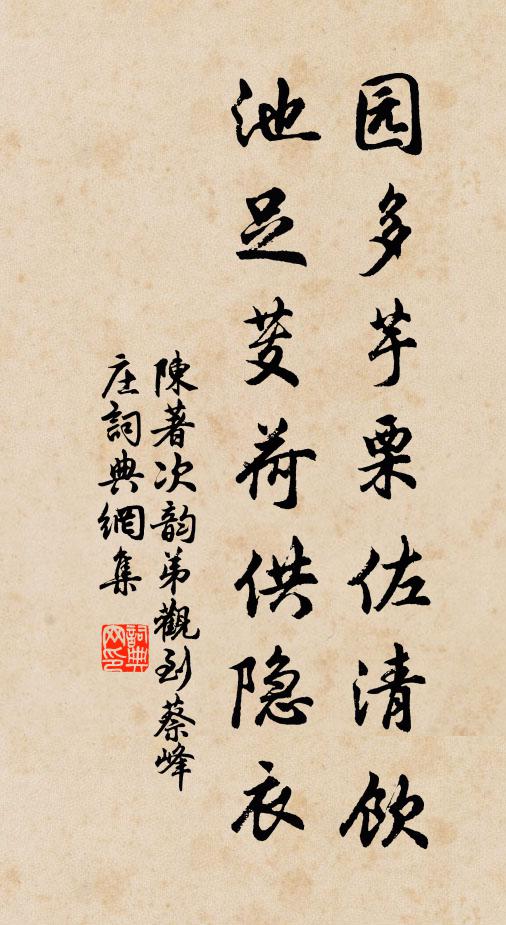 园多芋栗佐清饮
池足芰荷供隐衣
陳著次韵弟觀到蔡峰
庄詞典網集
詞典网印